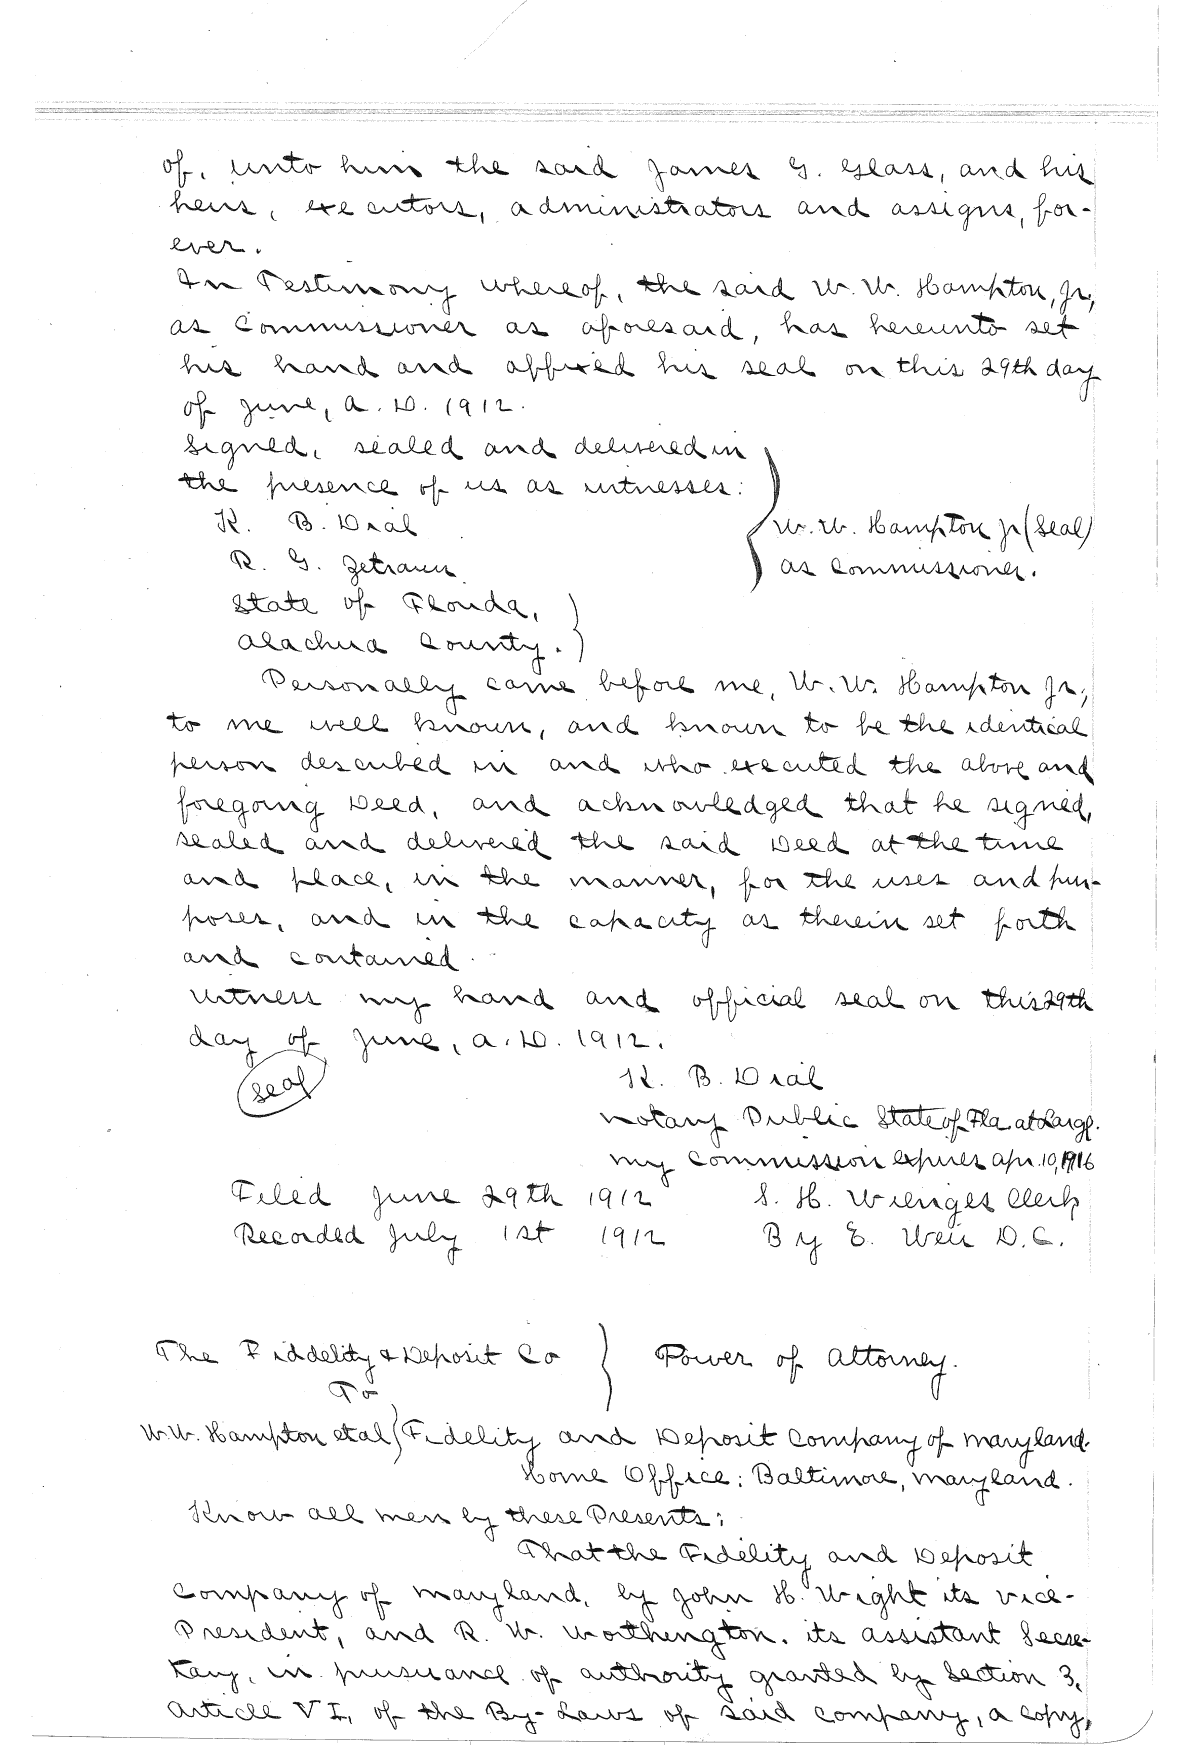 of, unto him the said James G. Glass, and his
heirs, executors, administrators and assigns, for-
ever.
In Testimony whereof, the said W. W. Hampton, Jr.,
as Commissioner as aforesaid, has hereunto set
his hand and affixed his seal on this 29th day
of June, A. D. 1912.
Signed, sealed and delivered in
the presence of us as witnesses:
K. B. Dial
W. W. Hampton Jr (Seal)
R. G. Zetrauer
as Commissioner.
State of Florida,
Alachua County.
Personally came before me, W. W. Hampton Jr.,
to me well known, and known to be the identical
person described in and who executed the above and
foregoing Deed, and acknowledged that he signed,
sealed and delivered the said Deed at the time
and place, in the manner, for the uses and pur-
poses, and in the capacity as therein set forth
and contained.
Witness my hand and official seal on this 29th
day of June, A. D. 1912.
Seal
K. B. Dial
Notary Public State of Fla at Large.
My Commission expires Apr. 10, 1916
Filed June 29th 1912 S. H. Wienges Clerk
Recorded July 1st 1912 By E. Weir D.C.
The Fiddelity & Deposit Co Power of Attorney.
To
W. W. Hampton et al Fidelity and Deposit Company of Maryland.
Home Office: Baltimore, Maryland.
Know all men by these Presents:
That the Fidelity and Deposit
Company of Maryland, by John H. Wight its Vice-
President, and R. W. Worthington, its assistant Secre-
tary, in pursuance of authority granted by Section 3,
Article VI, of the By-Laws of said Company, a copy,